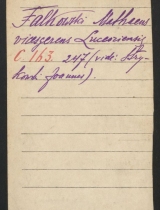 Falkowski Mathaeus
viceregens Luceoriensis
C. 163. 247 (vide: Stry-
kowski Joannes).